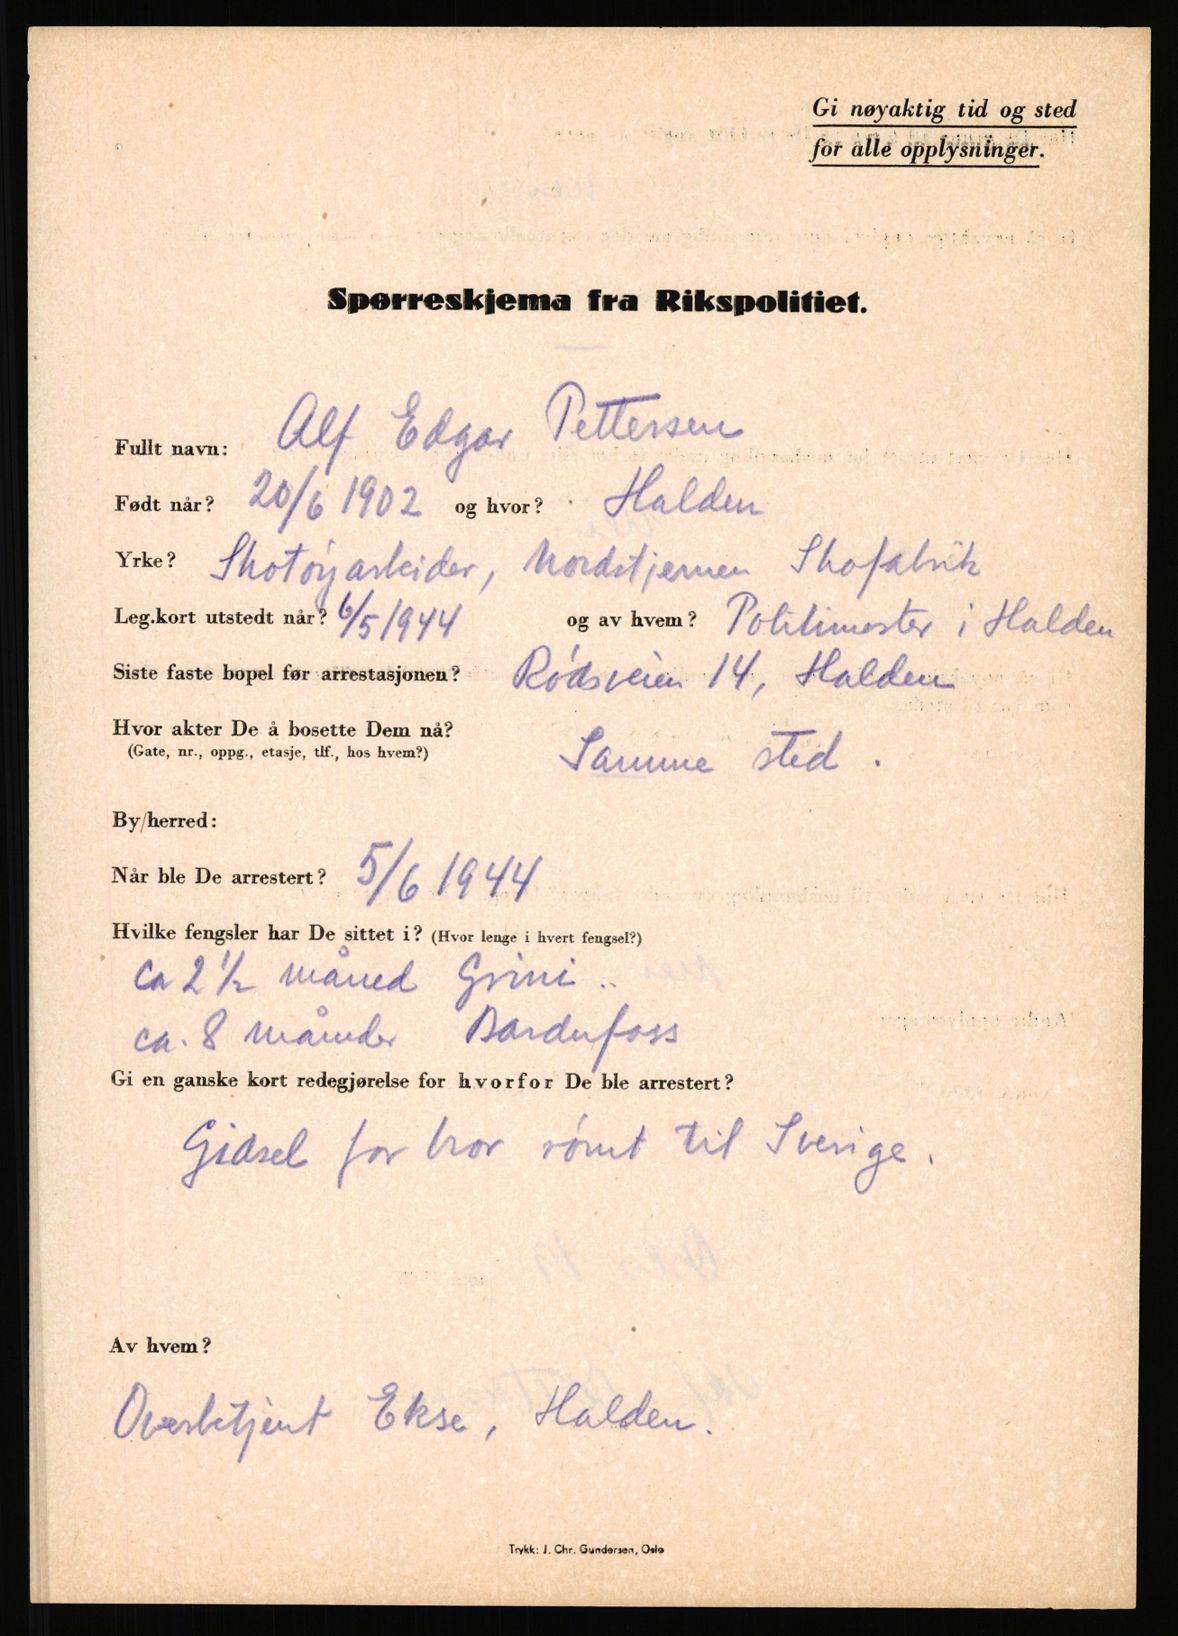 Gi nøyaktig tid og sted
for alle opplysninger.
Spørreskjema fra Rikspolitiet.
Fullt navn: Alf Edgar Pettersen
Født når? 20/6 1902 og hvor? Halden
Yrke? Skotøyarbeider, Nordstjernen Skofabrik
Leg.kort utstedt når? 6/5 1944 og av hvem? Politimester i Halden
Siste faste bopel før arrestasjonen? Rødsveien 14, Halden
Hvor akter De å bosette Dem nå?
(Gate, nr., oppg., etasje, tlf., hos hvem?) Samme sted.
By/herred:
Når ble De arrestert? 5/6 1944
Hvilke fengsler har De sittet i? (Hvor lenge i hvert fengsel?)
ca 2 ½ måned Grini ..
ca. 8 måneder Bardufoss
Gi en ganske kort redegjørelse for hvorfor De ble arrestert?
Gidsel for bror rømt til Sverige.
Av hvem?
Overbetjent Ekse, Halden.
Trykk: J. Chr. Gundersen, Oslo